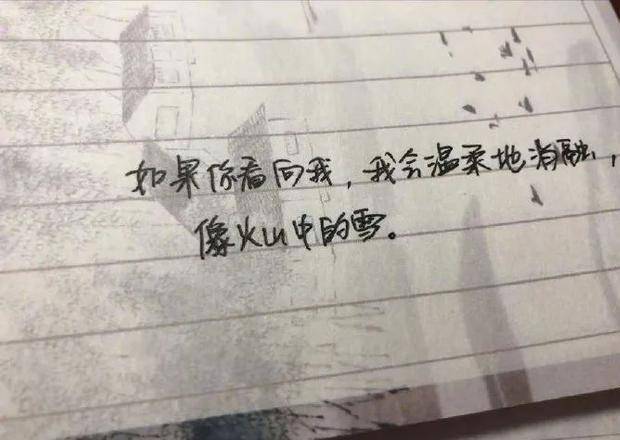 如果你看向我，我会温柔地消融，
像火山中的雪。